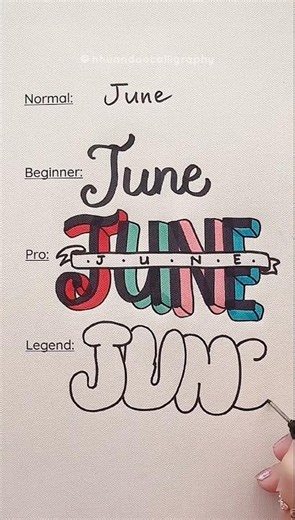 © nhuanduocalligraphy
Normal: June
Beginner: June
JUNE
Pro: J.U.N.E.
Legend: JUNE